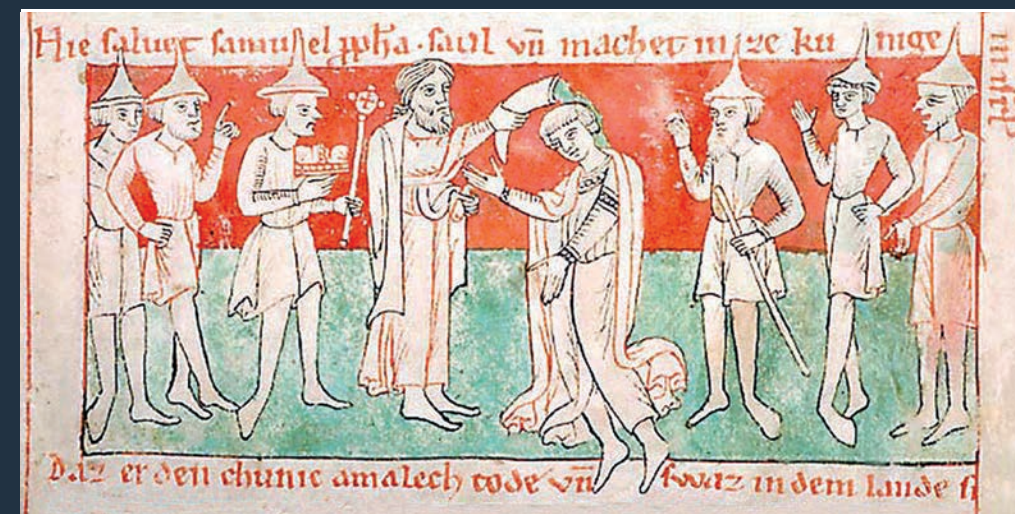 Hie salvet samuhel ppha · saul vñ machet in ze ku nige
Daz er den chunic amalech tode vñ swaz in dem lande si